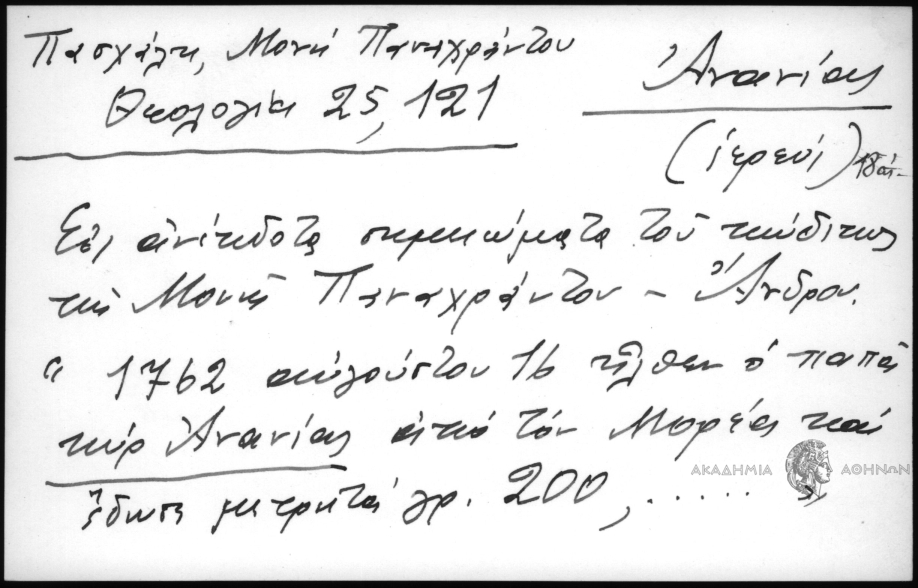 Πασχάλη, Μονή Παναχράντου
Θεολογία 25, 121
Ἀνανίας
(ἱερεύς) 18 αἰ.
Εἰς ἀνέκδοτα σημειώματα τοῦ κώδικος
τῆς Μονῆς Παναχράντου - Ἄνδρου.
" 1762 αὐγούστου 16 ἦλθεν ὁ παπᾶ
κύρ Ἀνανίας ἀπό τόν Μορέαν καί
ἔδωσε μετρητά γρ. 200, ...... "
ΑΚΑΔΗΜΙΑ ΑΘΗΝΩΝ